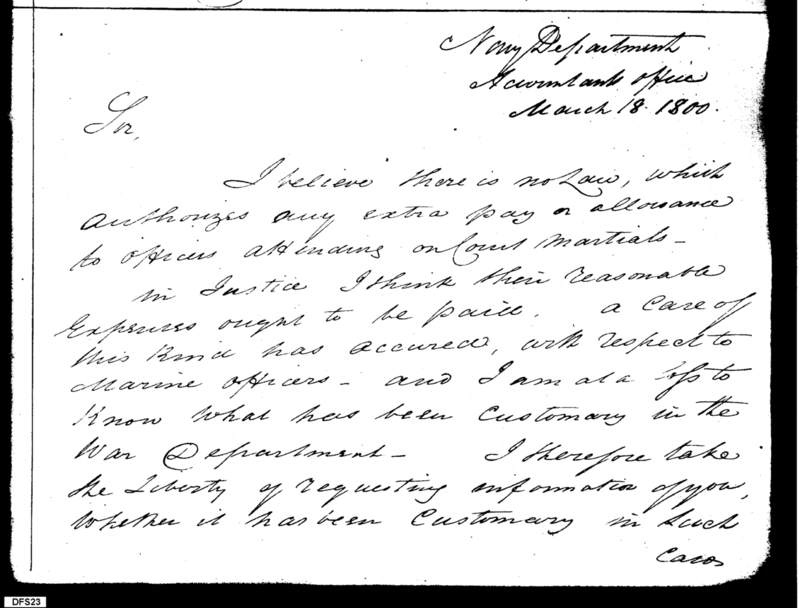 Navy Department
Accountants office
March 18. 1800.
Sir,
I believe there is no Law, which
authorizes any extra pay or allowance
to officers attending on Court Martials –
in Justice I think their reasonable
Expences ought to be paid. a Case of
this Kind has accured, with respect to
Marine officers – and I am at a loss to
Know what has been Customary in the
War Department – I therefore take
the Liberty of requesting information of you,
whether it has been Customary in such
Cases
DFS23